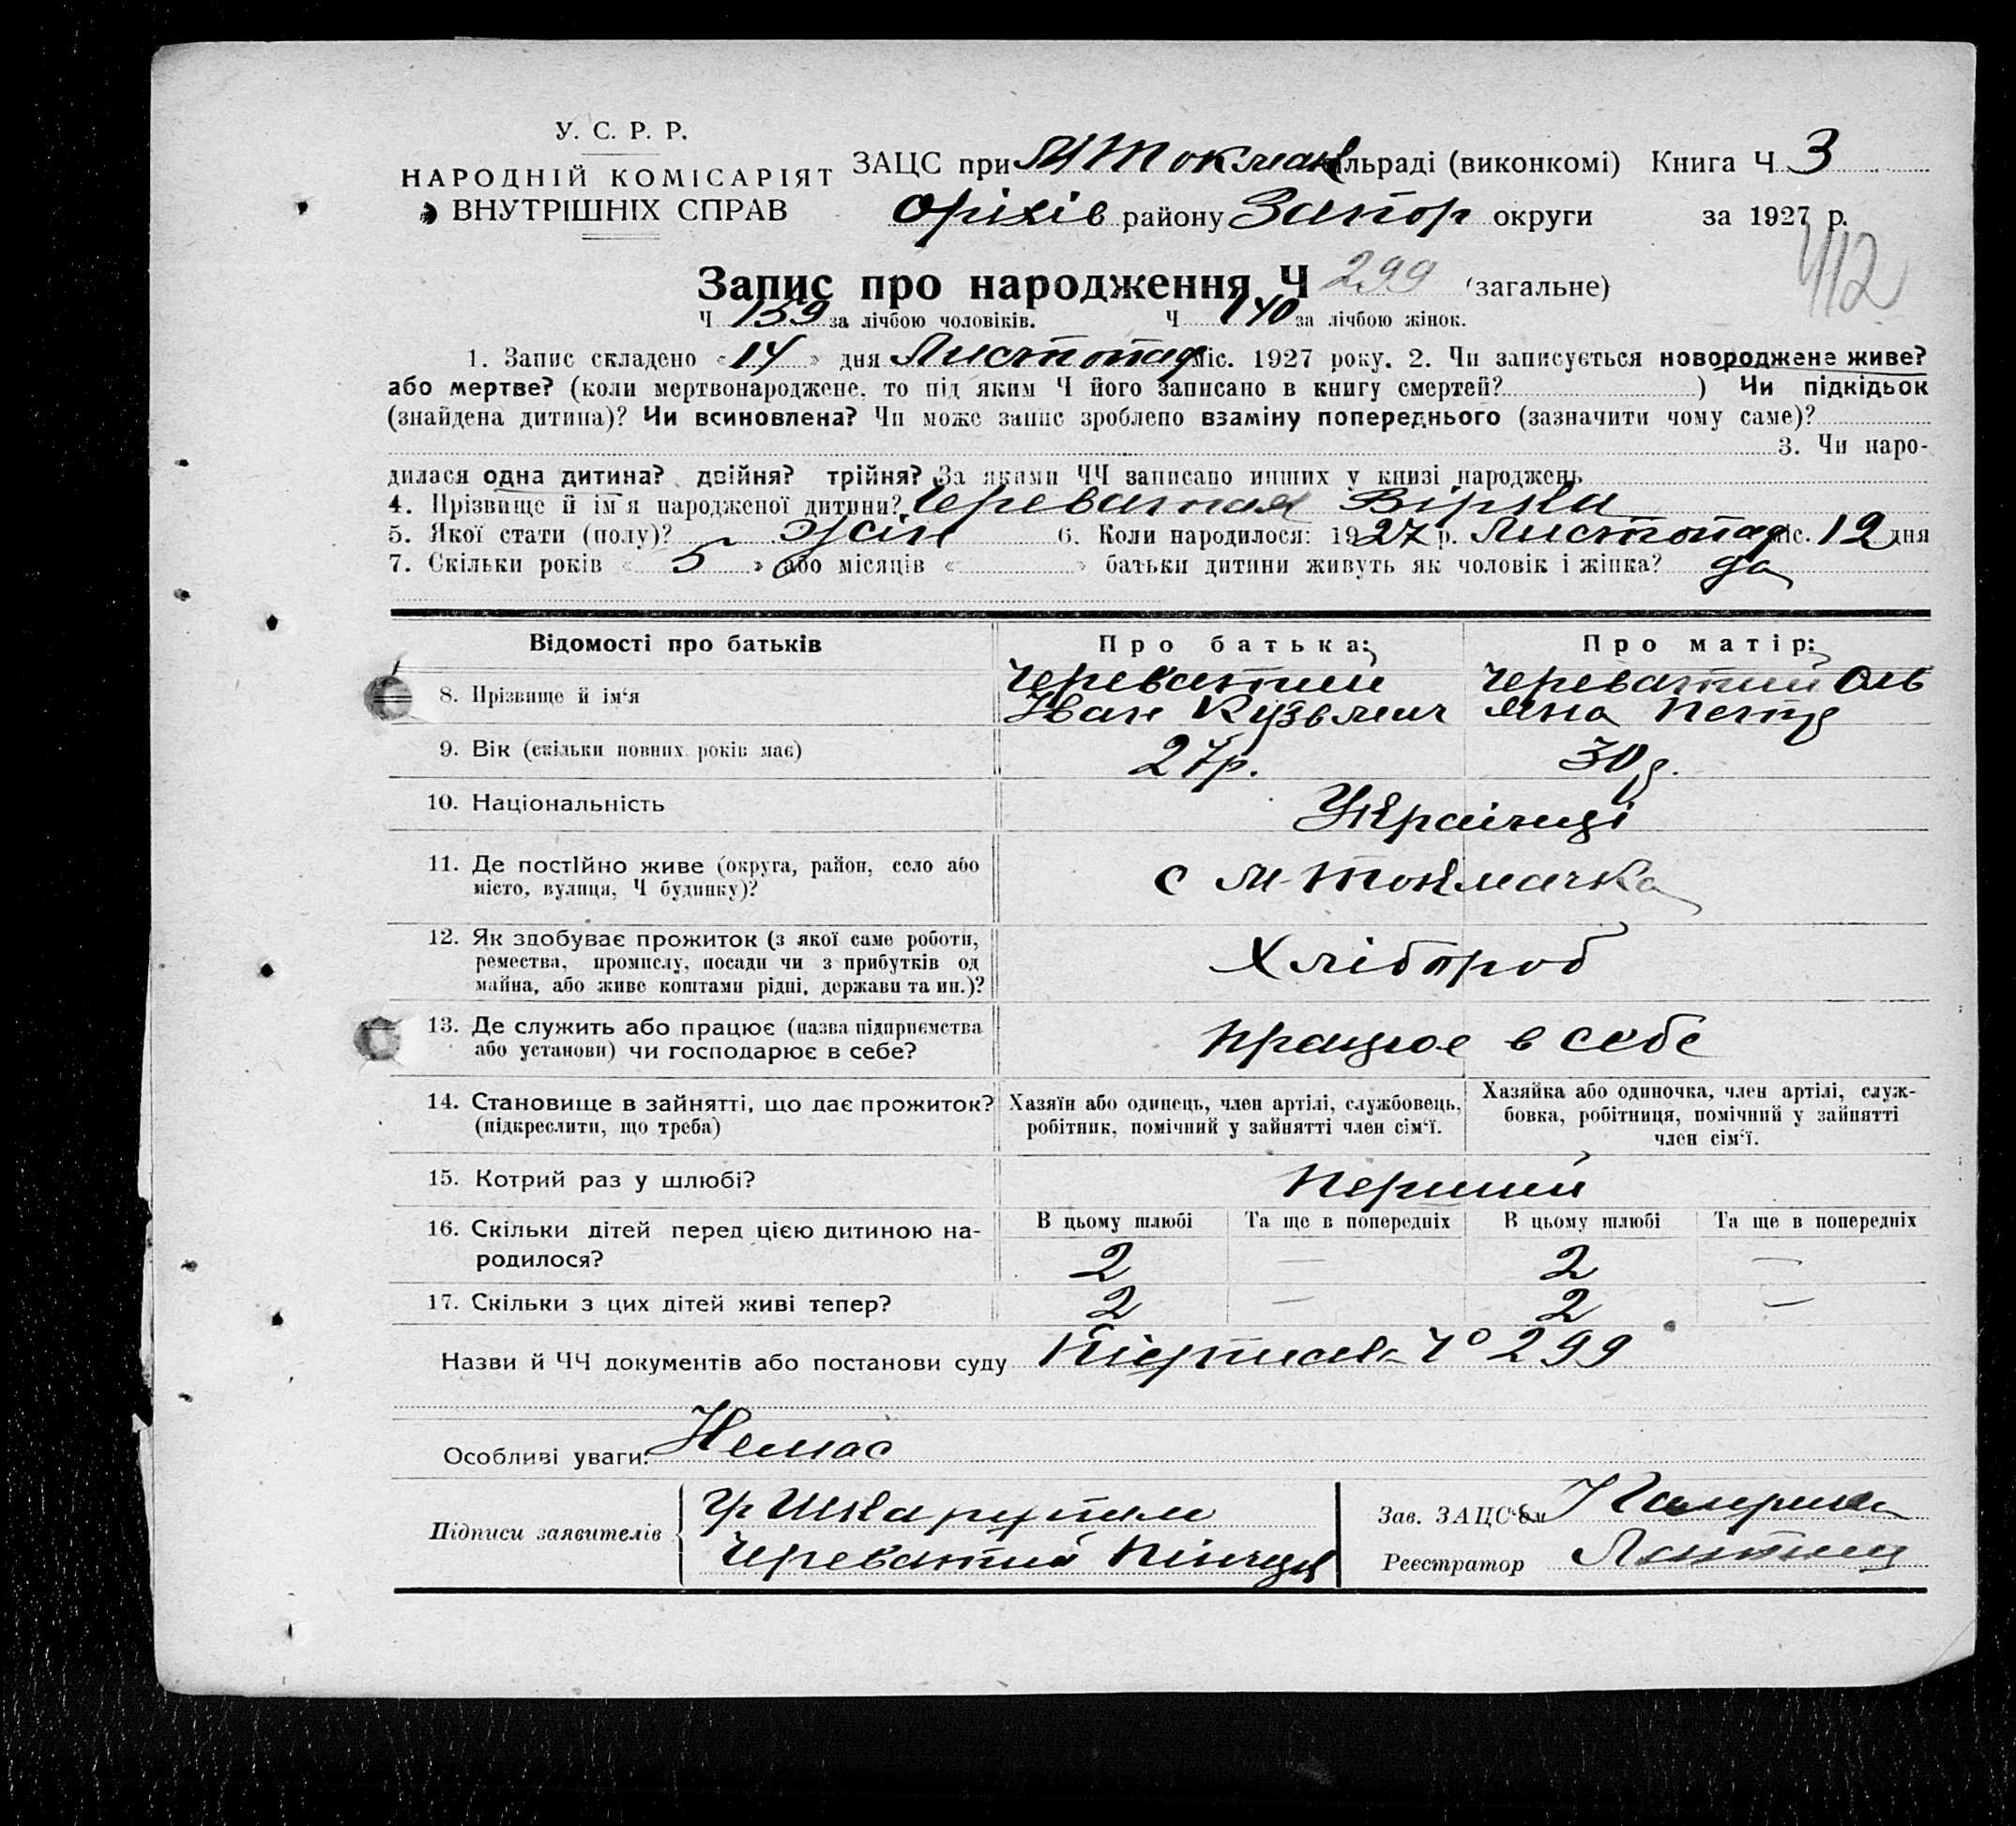 У. С. Р. Р.
НАРОДНІЙ КОМІСАРІЯТ
ВНУТРІШНІХ СПРАВ
ЗАЦС при М Токмач сільраді (виконкомі) Книга Ч 3
Оріхів району Запор округи за 1927 р.
412
Запис про народження Ч 299 (загальне)
Ч 159 за лічбою чоловіків. Ч 140 за лічбою жінок.
1. Запис складено «14» дня Листопад міс. 1927 року. 2. Чи записується новороджене живе?
або мертве? (коли мертвонароджене, то під яким Ч його записано в книгу смертей? ) Чи підкідьок
(знайдена дитина)? Чи всиновлена? Чи може запис зроблено взаміну попереднього (зазначити чому саме)?
3. Чи наро-
дилася одна дитина? двійня? трійня? За якими ЧЧ записано инших у книзі народжень
4. Прізвище й ім'я народженої дитини? Череватая Вірна
5. Якої стати (полу)? жін 6. Коли народилося: 1927 р. Листопад міс. 12 дня
7. Скільки років « 5 » або місяців « » батьки дитини живуть як чоловік і жінка? да
Відомості про батьків Про батька: Про матір:
8. Прізвище й ім'я Череватий Череватий Оль
Іван Кузьмич яна Петр
9. Вік (скільки повних років має) 27р. 30р.
10. Національність Українці
11. Де постійно живе (округа, район, село або
місто, вулиця, Ч будинку)? с М-Токмачка
12. Як здобуває прожиток (з якої саме роботи,
ремества, промислу, посади чи з прибутків од
майна, або живе коштами рідні, держави та ин.)? Хлібороб
13. Де служить або працює (назва підприємства
або установи) чи господарює в себе? працює в себе
14. Становище в зайнятті, що дає прожиток?
(підкреслити, що треба)
Хазяїн або одинець, член артілі, службовець,
робітник, помічний у зайнятті член сім'ї.
Хазяйка або одиночка, член артілі, служ-
бовка, робітниця, помічний у зайнятті
член сім'ї.
15. Котрий раз у шлюбі? Перший
16. Скільки дітей перед цією дитиною на-
родилося?
В цьому шлюбі Та ще в попередніх В цьому шлюбі Та ще в попередніх
2 — 2 —
17. Скільки з цих дітей живі тепер? 2 — 2 —
Назви й ЧЧ документів або постанови суду 299
Особливі уваги: Немає
Підписи заявителів
Череватий
Зав. ЗАЦС'ом
Реєстратор